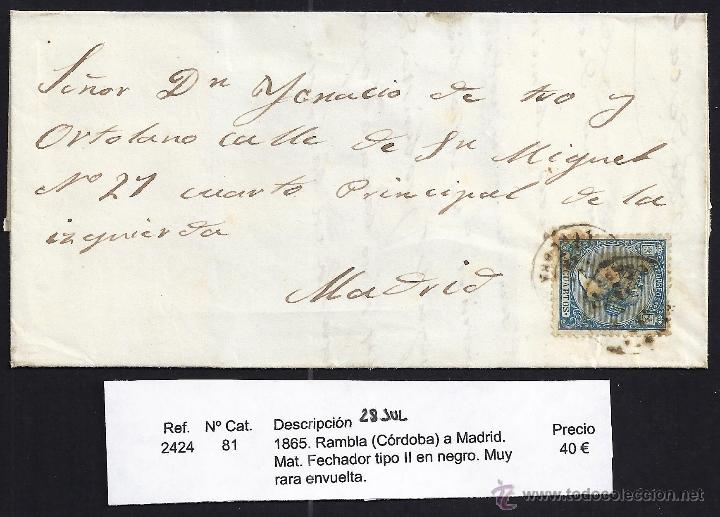 Señor Dn Ygnacio de tro y
Ortolano calle de Sn Miguel
No 27 cuarto Principal de la
izquierda
Madrid
CUARTOS
Ref. Nº Cat. Descripción 28 JUL Precio
2424 81 1865. Rambla (Córdoba) a Madrid. 40 €
Mat. Fechador tipo II en negro. Muy
rara envuelta.
todocoleccion.net